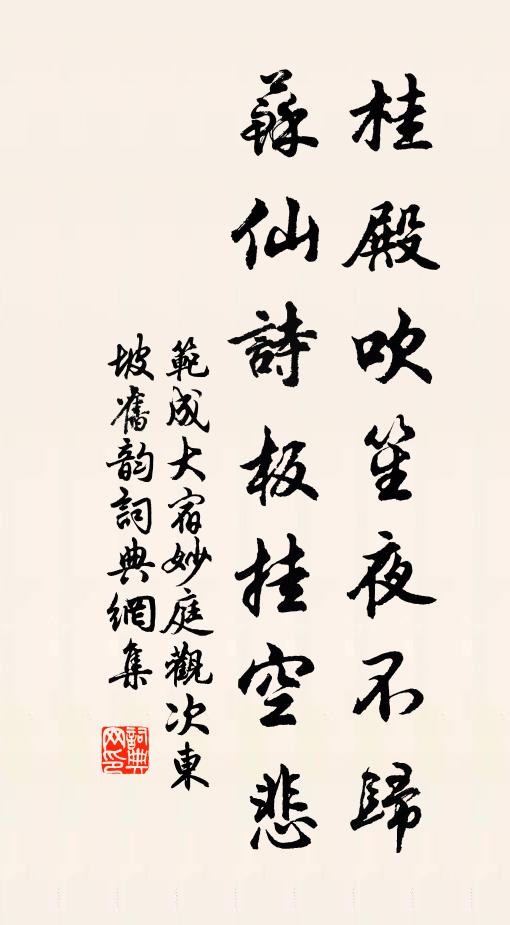 桂殿吹笙夜不歸
蘇仙詩板挂空悲
範成大宿妙庭觀次東
坡舊韵詞典網集
詞典網印